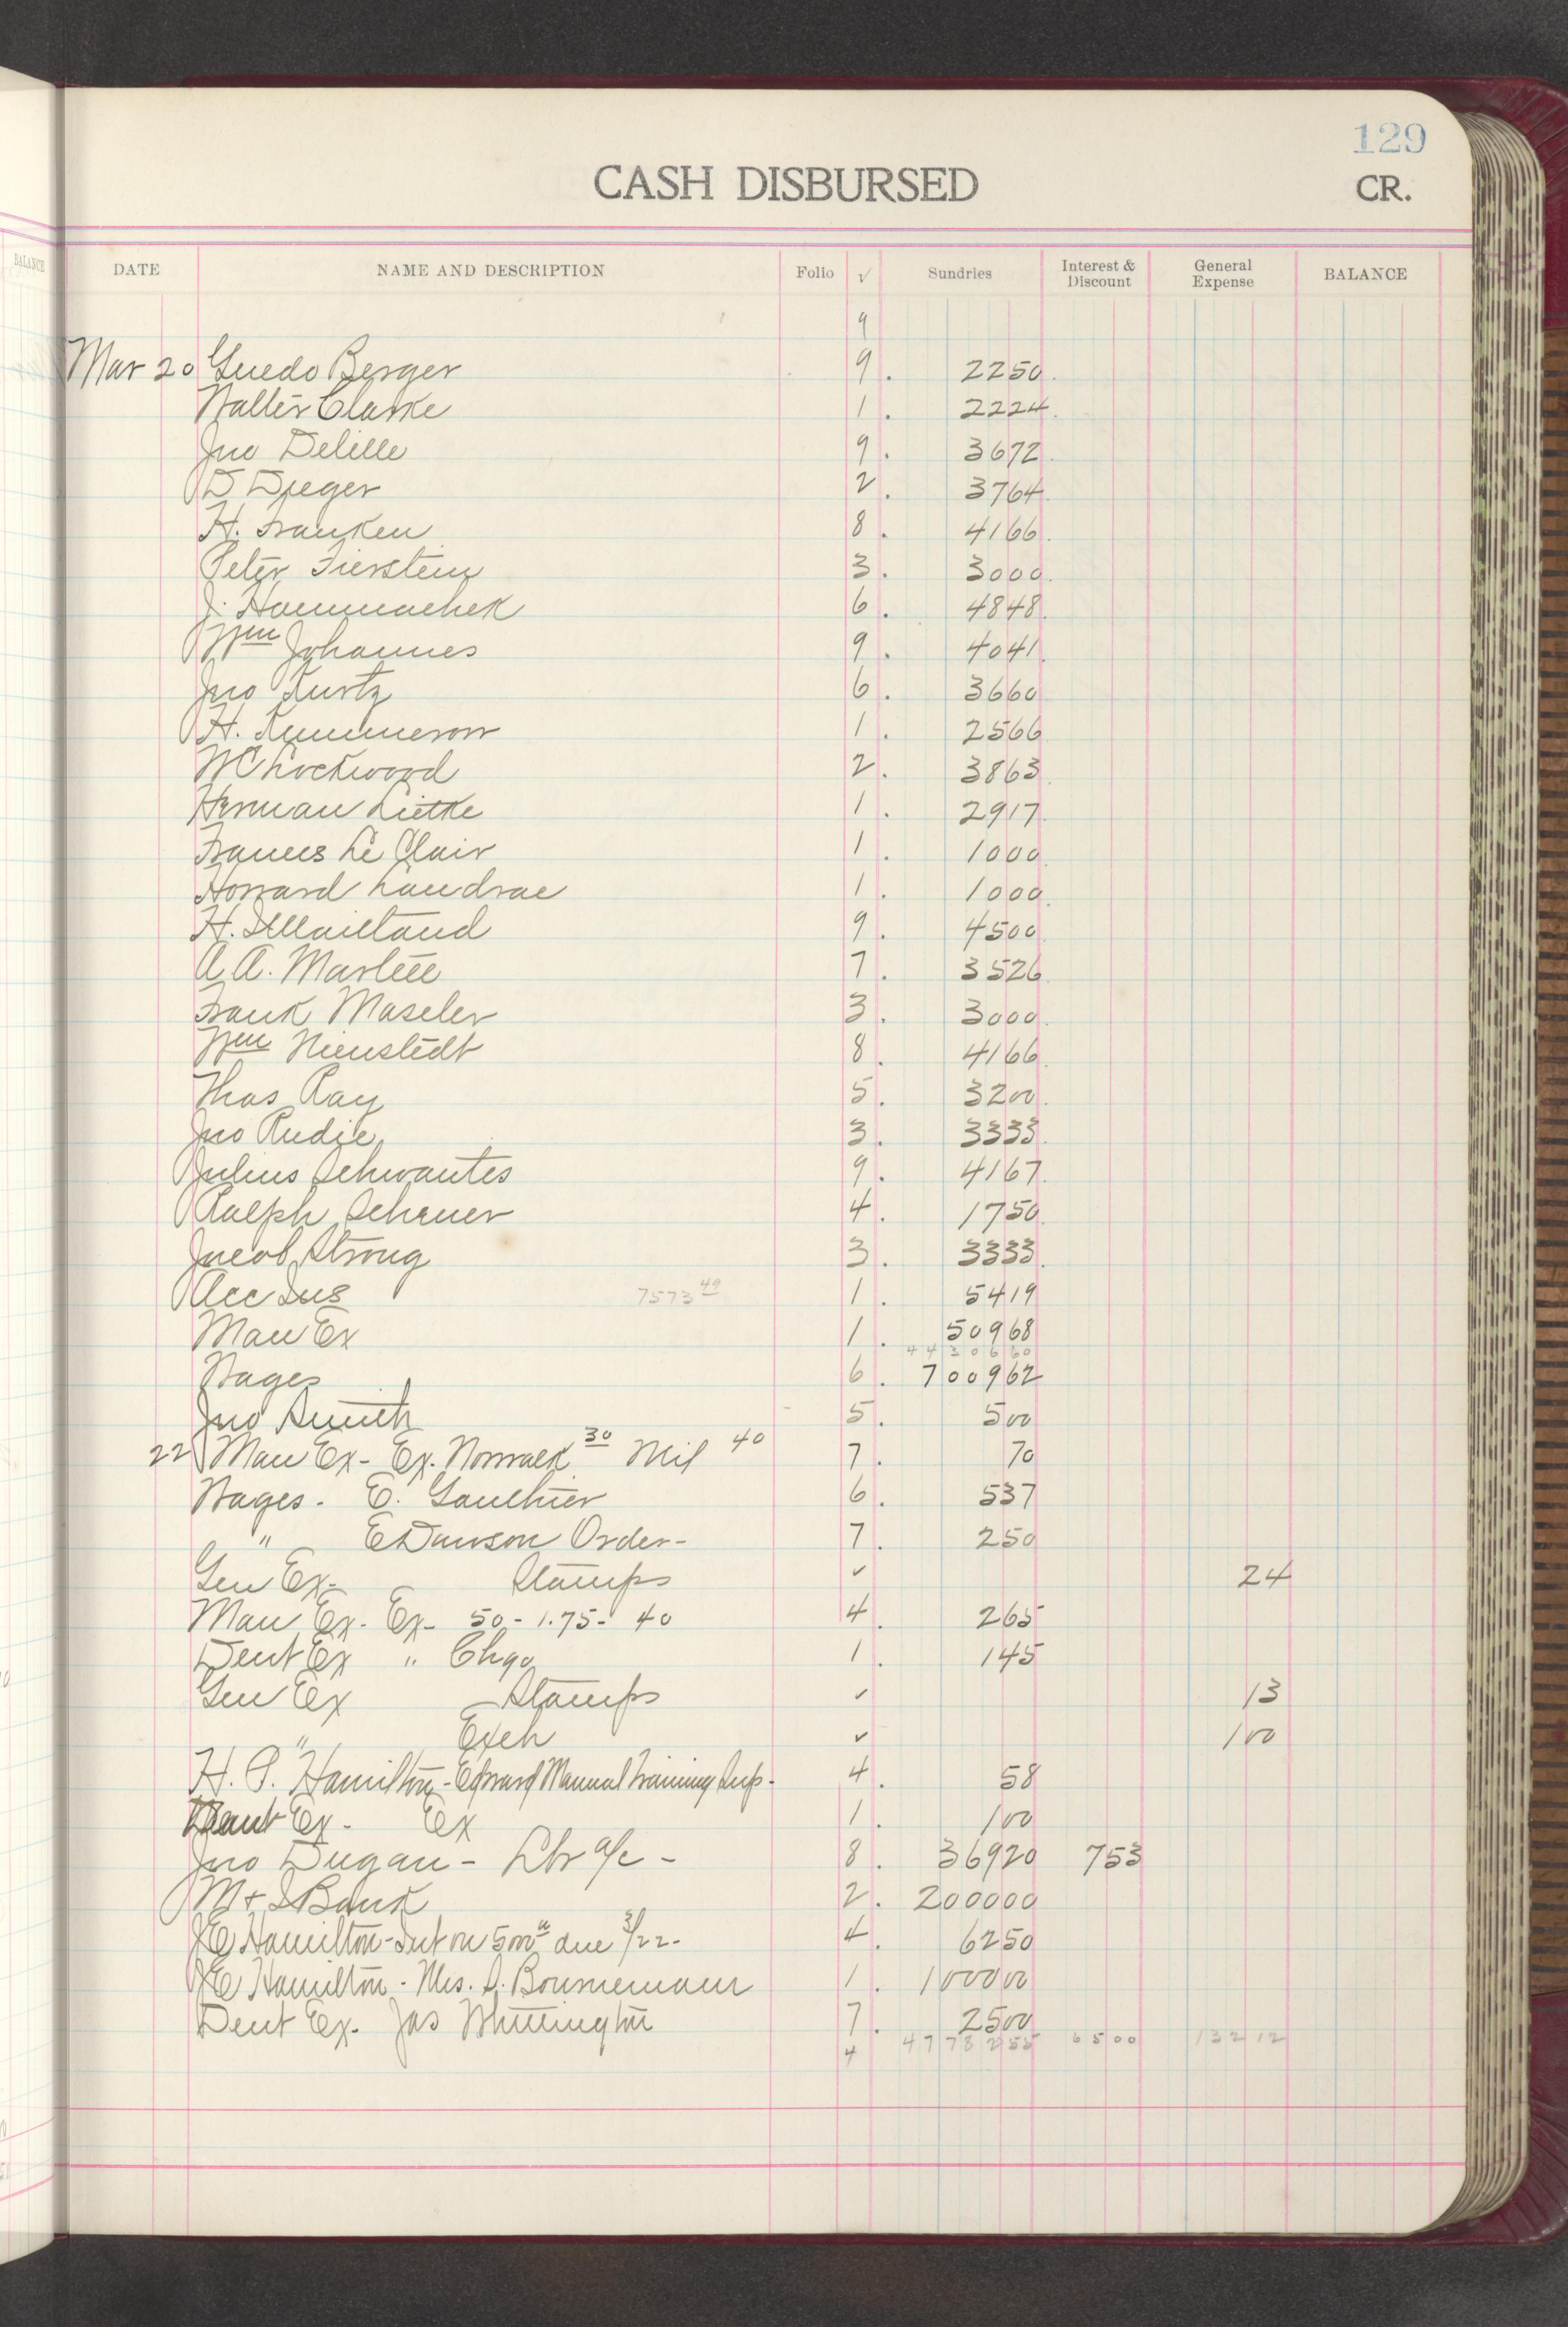 129
CASH DISBURSED CR.
BALANCE DATE NAME AND DESCRIPTION Folio √ Sundries Interest & Discount General Expense BALANCE
9
Mar 20 Guedo Berger 9. 2250
Walter Clarke 1. 2224
Jno Delille 9. 3672
D Dreger 2. 3764
H. Franken 8. 4166
Peter Fierstein 3. 3000
J. Hammachek 6. 4848
Wm Johannes 9. 4041
Jno Kurtz 6. 3660
H. Kummerow 1. 2566
W C Lockwood 2. 3863
Herman Lietke 1. 2917
Frances Le Clair 1. 1000
Howard Landrae 1. 1000
H. S Maitland 9. 4500
A A. Martell 7. 3526
Frank Maseler 3. 3000
Wm Nienstedt 8. 4166
Thos Ray 5. 3200
Jno Rudie 3. 3333
Julius Schwantes 9. 4167
Ralph Scheuer 4. 1750
Jacob Strong 3. 3333
Acc Ins 7573 49 1. 5419
Man Ex 1. 50968
4430660
Wages 6. 700962
Jno Smith 5. 500
22 Man Ex - Ex. Norwalk 30 Mil 40 7. 70
Wages - E. Gauthier 6. 537
" E Dawson Order - 7. 250
Gen Ex - Stamps ✓ 24
Man Ex - Ex - 50 - 1.75 - 40 4. 265
Dent Ex " Chgo 1. 145
Gen Ex - Stamps ✓ 13
" Exch ✓ 100
H. P. Hamilton - Edward Manual Training Sup - 4. 58
Ex - Ex 1. 100
Jno Dugan - Lbr a/c - 8. 36920 753
M & I Bank 2. 200000
J E Hamilton - Int on 5000 due 3/22 - 4. 6250
J E Hamilton - Mrs. S. 1. 100000
Dent Ex. Jas Whittington 7. 2500
4 4778255 6500 13212